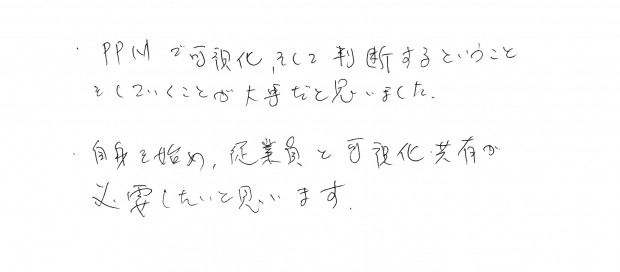 ・PPMで可視化、そして判断するということ
そしていくことが大事だと思いました。
・自身を始め、従業員と可視化・共有が
必要したいと思います。